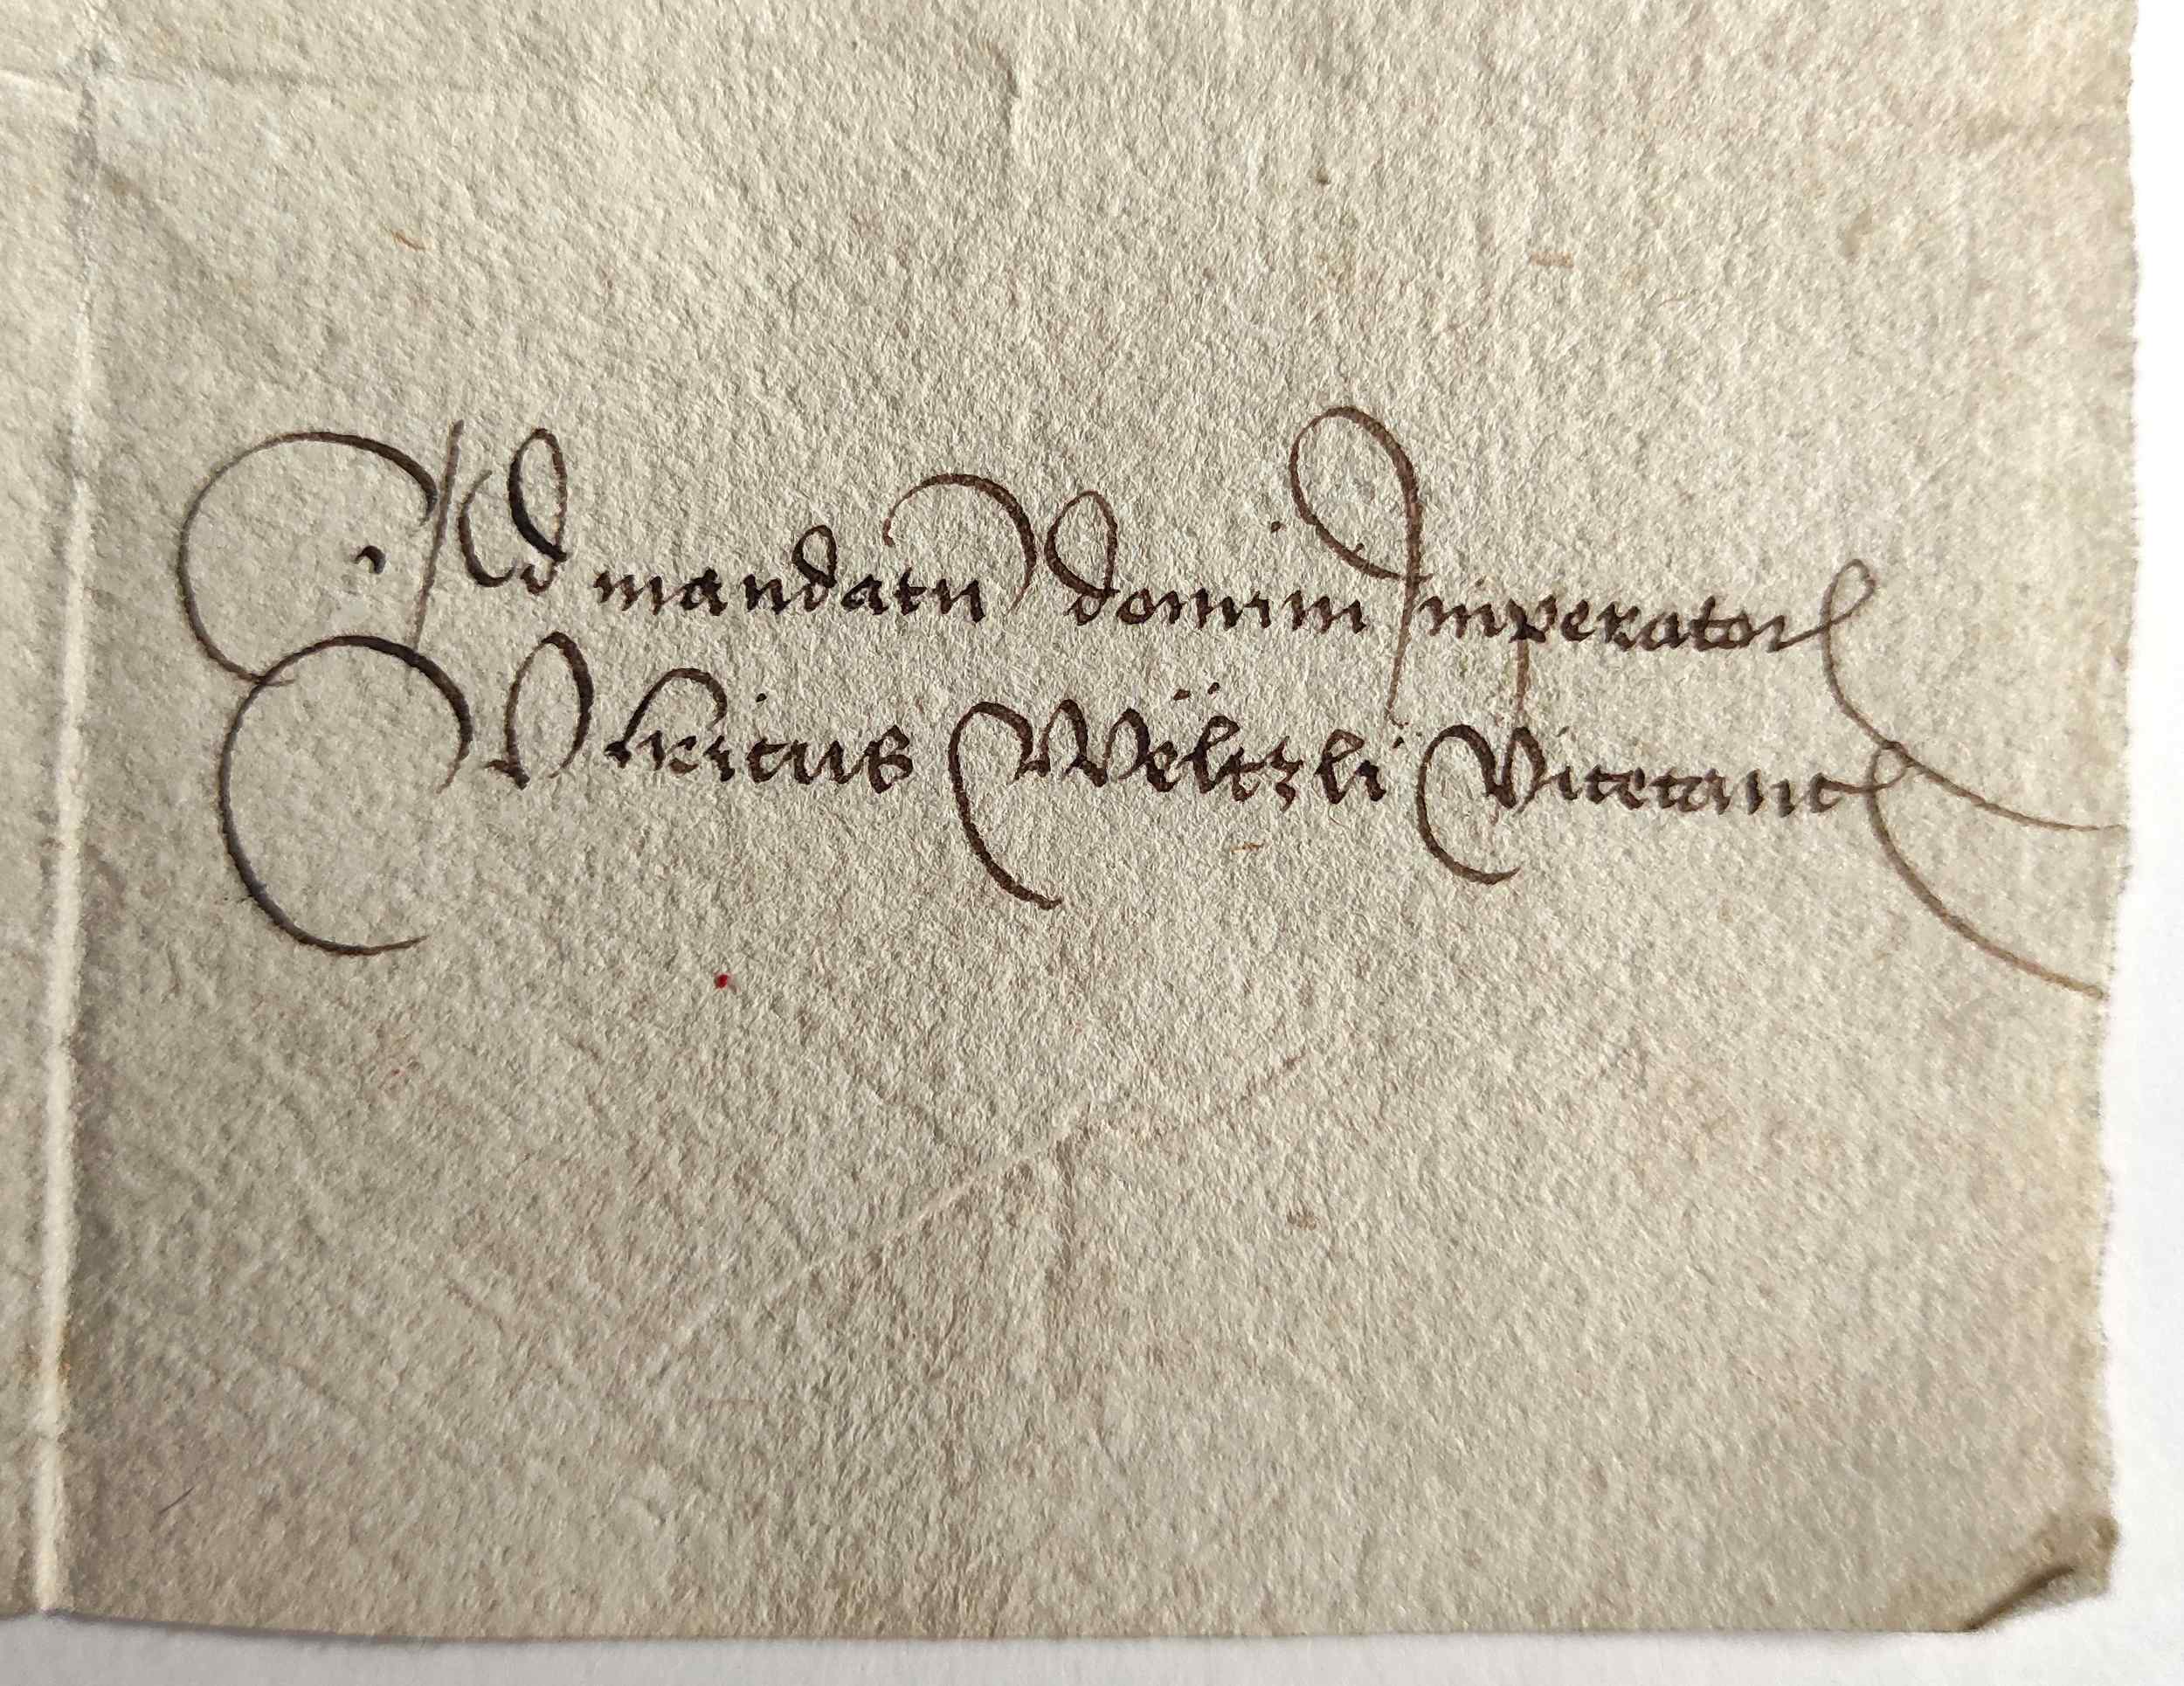 Ad mandatu domini Imperator
Vlricus Wëltzli Vicecanc